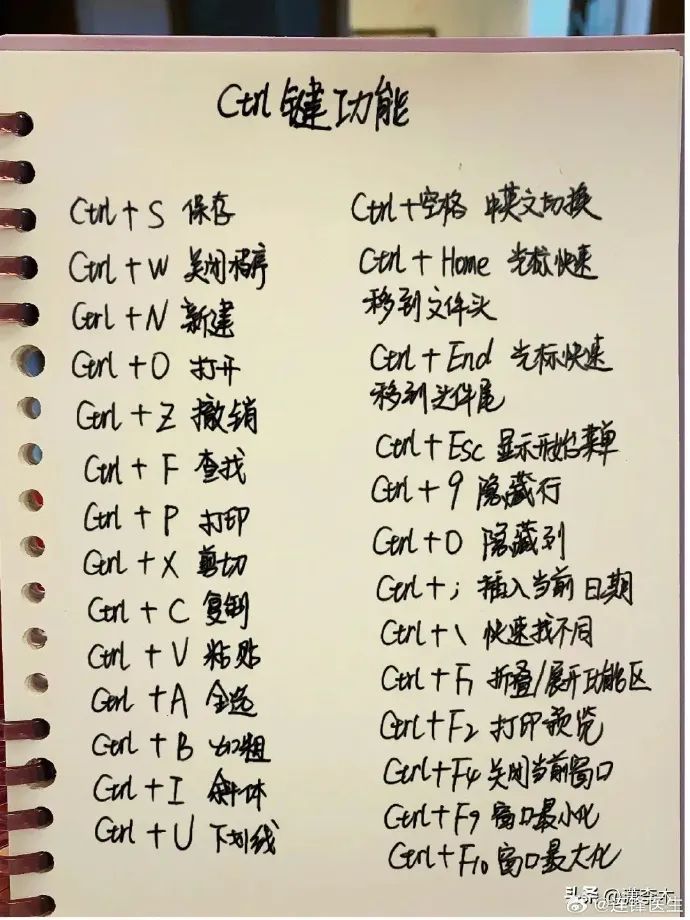 Ctrl键功能
Ctrl+S 保存
Ctrl+W 关闭程序
Ctrl+N 新建
Ctrl+O 打开
Ctrl+Z 撤销
Ctrl+F 查找
Ctrl+P 打印
Ctrl+X 剪切
Ctrl+C 复制
Ctrl+V 粘贴
Ctrl+A 全选
Ctrl+B 加粗
Ctrl+I 斜体
Ctrl+U 下划线
Ctrl+空格 中英文切换
Ctrl+Home 光标快速
移到文件头
Ctrl+End 光标快速
移到文件尾
Ctrl+Esc 显示开始菜单
Ctrl+9 隐藏行
Ctrl+0 隐藏列
Ctrl+; 插入当前日期
Ctrl+\ 快速找不同
Ctrl+F1 折叠/展开功能区
Ctrl+F2 打印预览
Ctrl+F4 关闭当前窗口
Ctrl+F9 窗口最小化
Ctrl+F10 窗口最大化
头条
@连锋医生